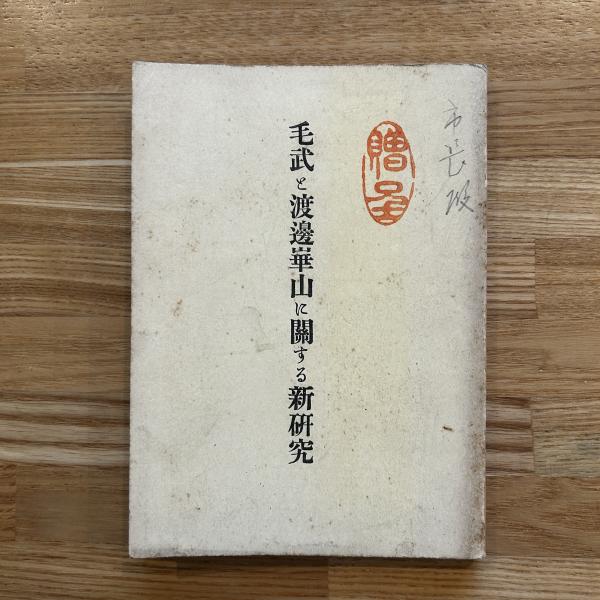 市長殿
贈呈
毛武と渡邊崋山に關する新硏究